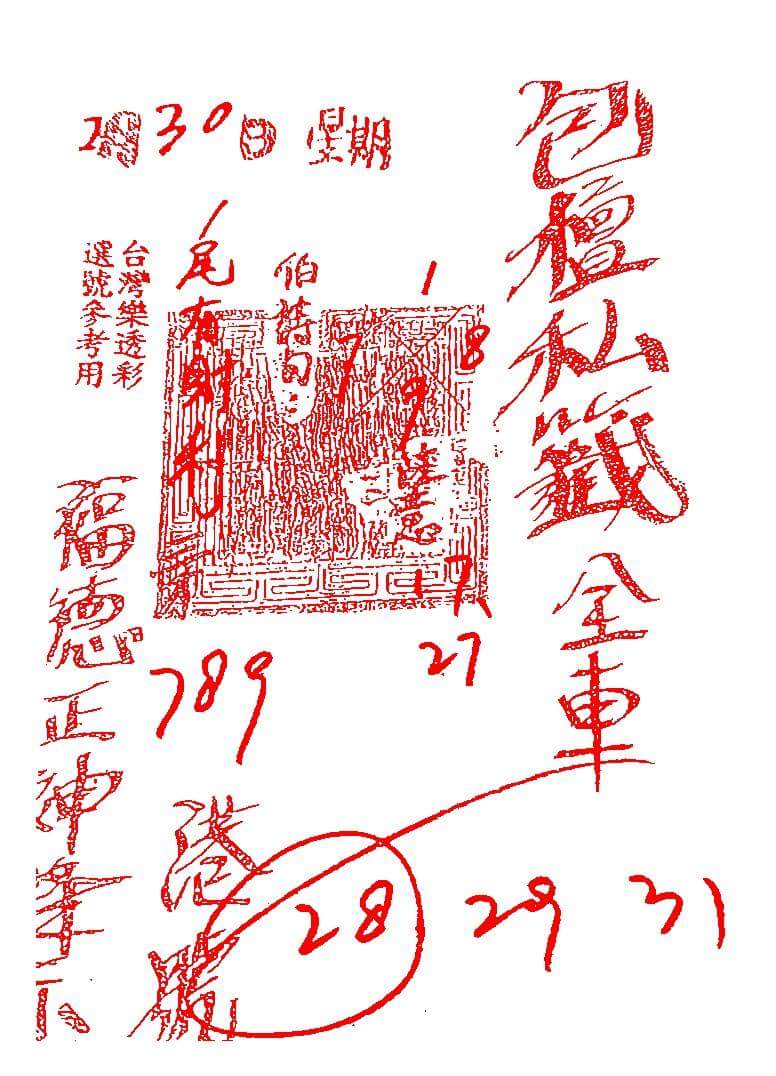 包檀私籤全車
月30日 星期
台灣樂透彩
選號參考用
伯詩曰
尾有財利
1
7 8
9
17
27
789
福德正神
港
28 29 31